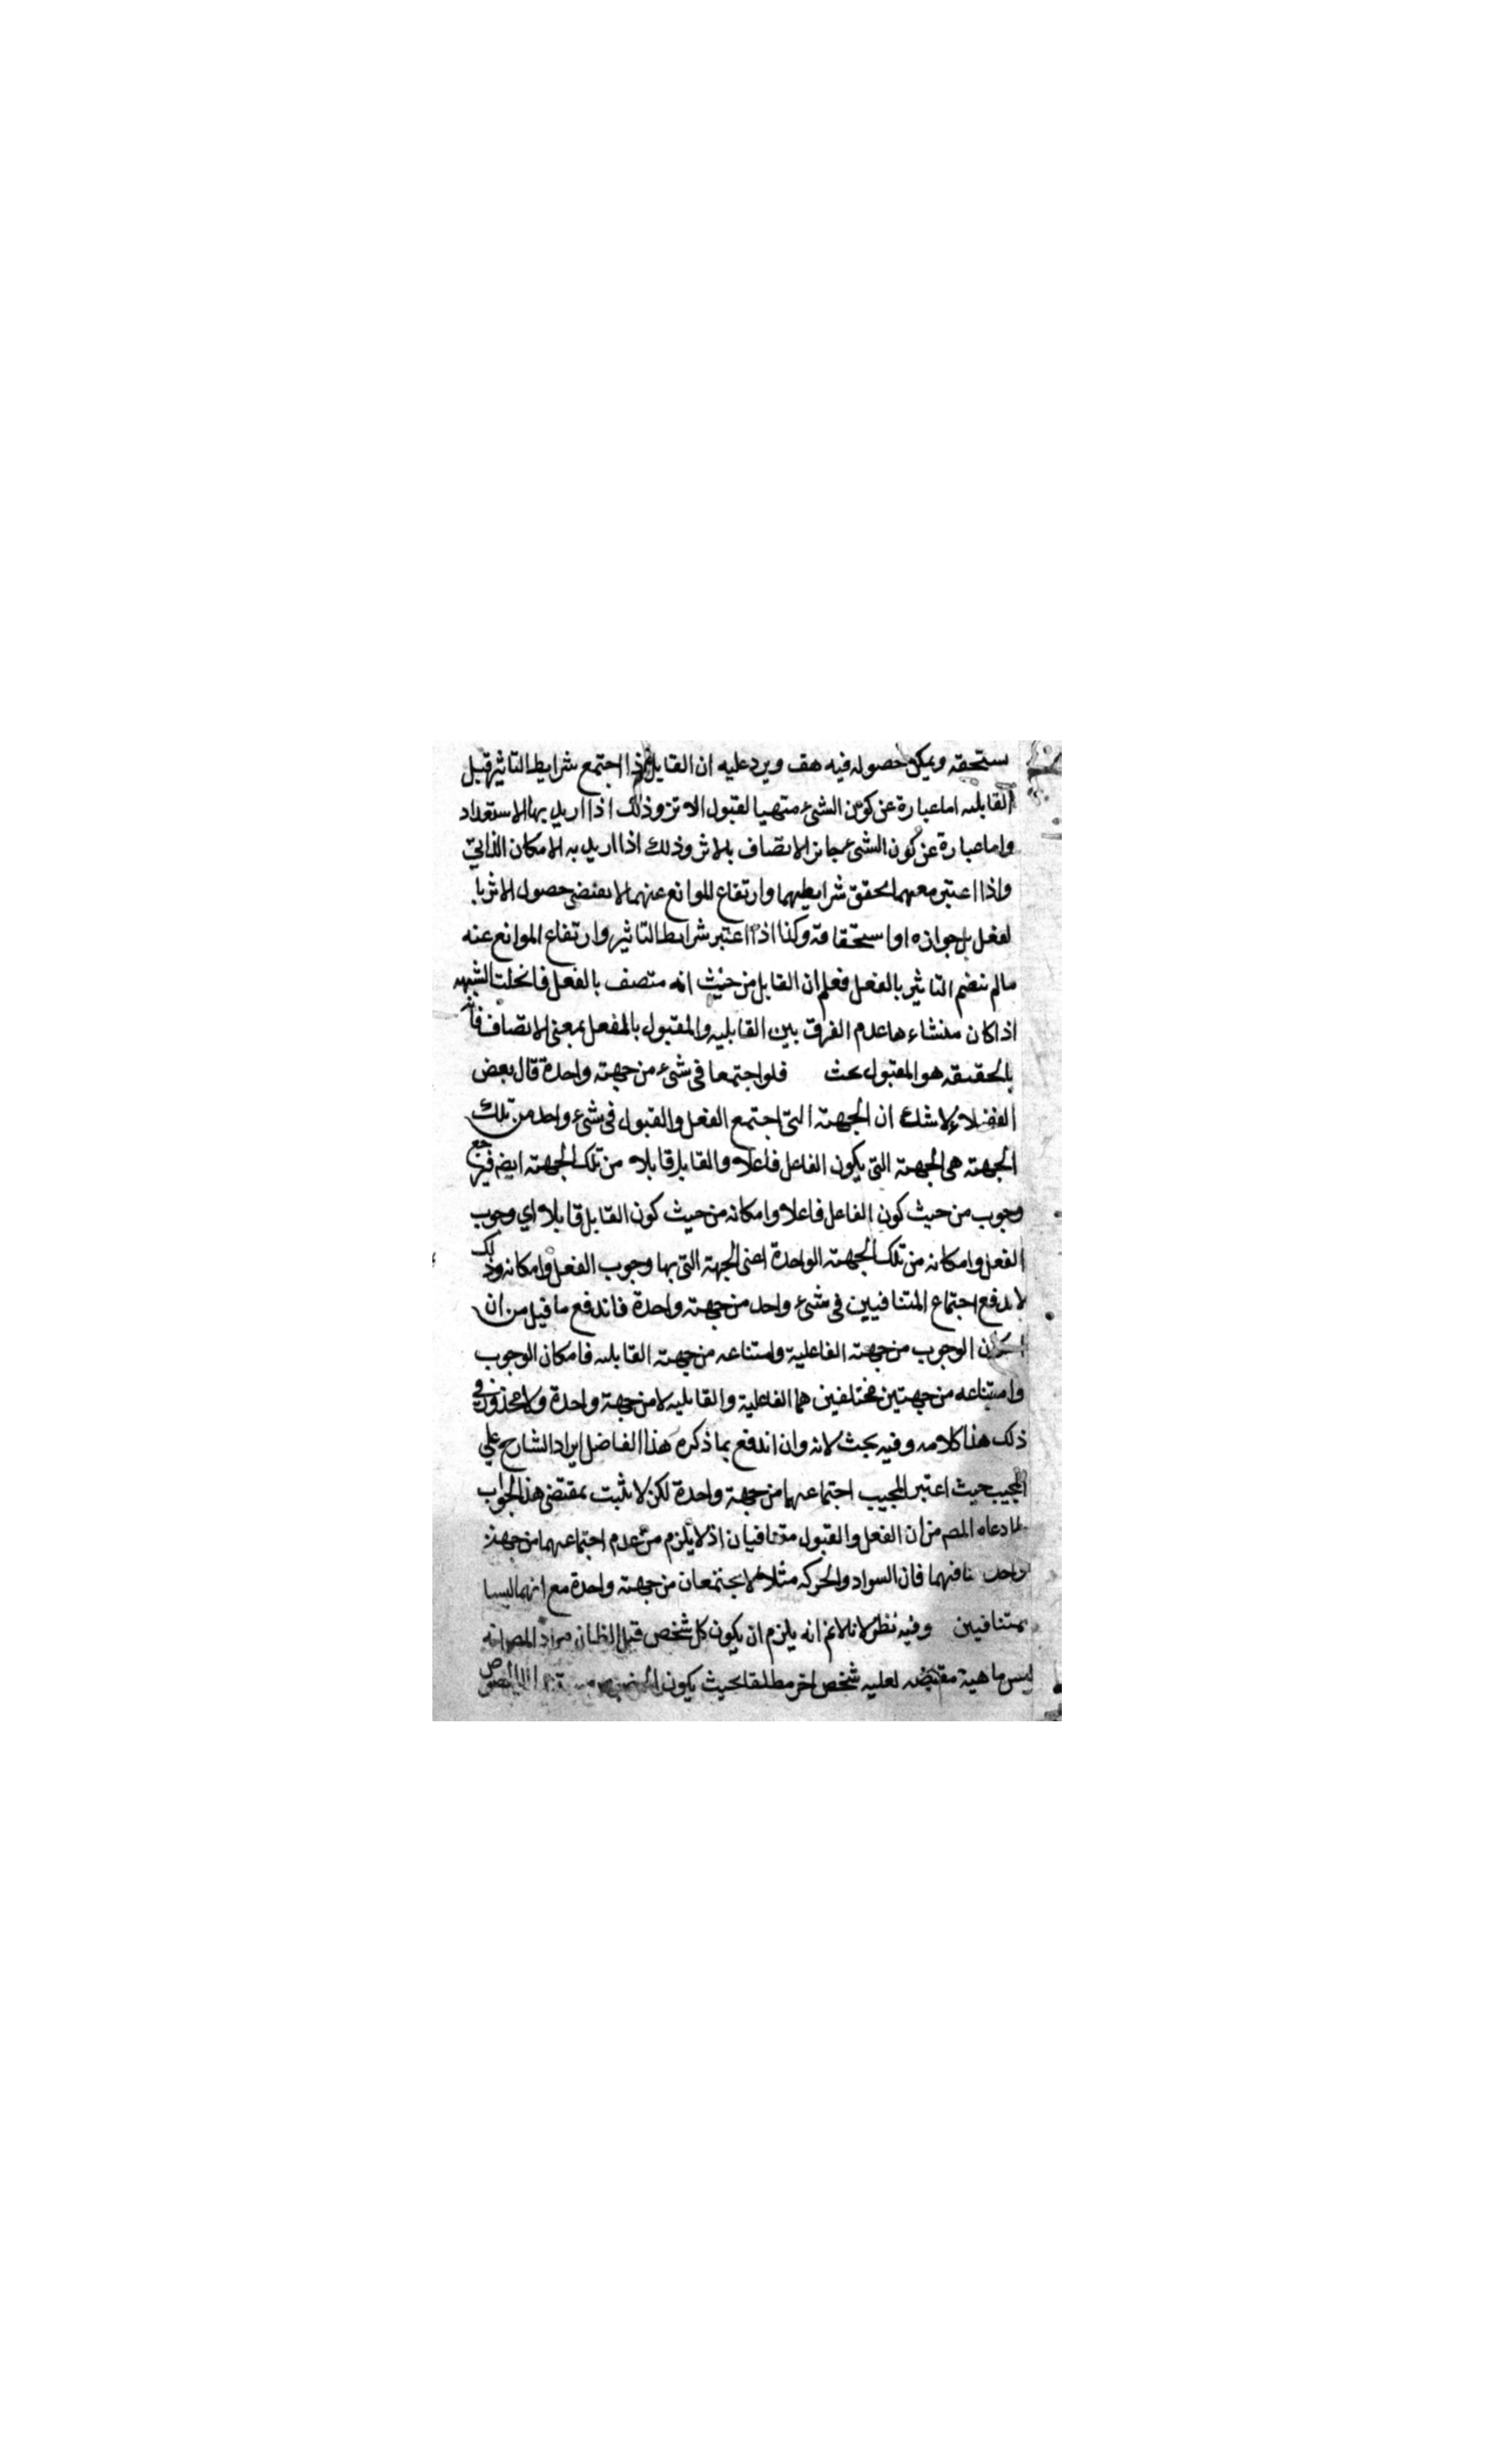 يستحقه ويمكن حصوله فيه هف ويرد عليه ان القابل اذا اجتمع شرايط التاثير قبل
القابليه اما عبارة عن كون الشيء متهيا لقبول الاثر وذلك اذا اريد بها الاستعداد
واما عبارة عن كون الشيء جائز الاتصاف بالاثر وذلك اذا اريد به الامكان الذاتي
واذا اعتبر معهما تحقق شرايطهما وارتفاع الموانع عنهما لا يقتضى حصول الاثر با
لفعل بل جوازه او استحقاقه وكذا اذا اعتبر شرايط التاثير وارتفاع الموانع عنه
مالم ينضم التاثير بالفعل فعلم ان القابل من حيث انه متصف بالفعل فانحلت الشبهه
اذ كان منشاءها عدم الفرق بين القابليه والمقبول بالفعل بمعنى الاتصاف فا
بالحقيقه هو المقبول بحث فلو اجتمعا فى شيء من جهته واحدة قال بعض
الفضلاء لا شك ان الجهته التى اجتمع الفعل والقبول فى شيء واحد من تلك
الجهته هى الجهته التى يكون الفاعل فاعلا والقابل قابلا من تلك الجهته ايضا
وجوب من حيث كون الفاعل فاعلا وامكانه من حيث كون القابل قابلا اي وجوب
الفعل وامكانه من تلك الجهته الواحدة اعنى الجهة التى بها وجوب الفعل وامكانه وذلك
لا يدفع اجتماع المتنافيين فى شيء واحد من جهته واحدة فاندفع ما قيل من ان
امكان الوجوب من جهته الفاعلية وامتناعه من جهته القابليه فامكان الوجوب
وامتناعه من جهتين مختلفين هما الفاعلية والقابليه لا من جهة واحدة ولا محذور فى
ذلك هذا كلامه وفيه بحث لانه وان اندفع بما ذكره هذا الفاضل ايراد الشارح على
المجيب حيث اعتبر المجيب اجتماعهما من جهة واحدة لكن لا يثبت بمقتضى هذا الجواب
ما دعاه المصم من ان الفعل والقبول متنافيان اذ لا يلزم من عدم اجتماعهما من جهة
واحد تنافيهما فان السواد والحركه مثلا لا يجتمعان من جهته واحدة مع انهما ليسا
بمتنافيين وفيه نظر لانا لانم انه يلزم ان يكون كل شخص قبل الظان مراد المص انه
ليس ماهية مقتضيه لعليه شخص اخر مطلقا بحيث يكون